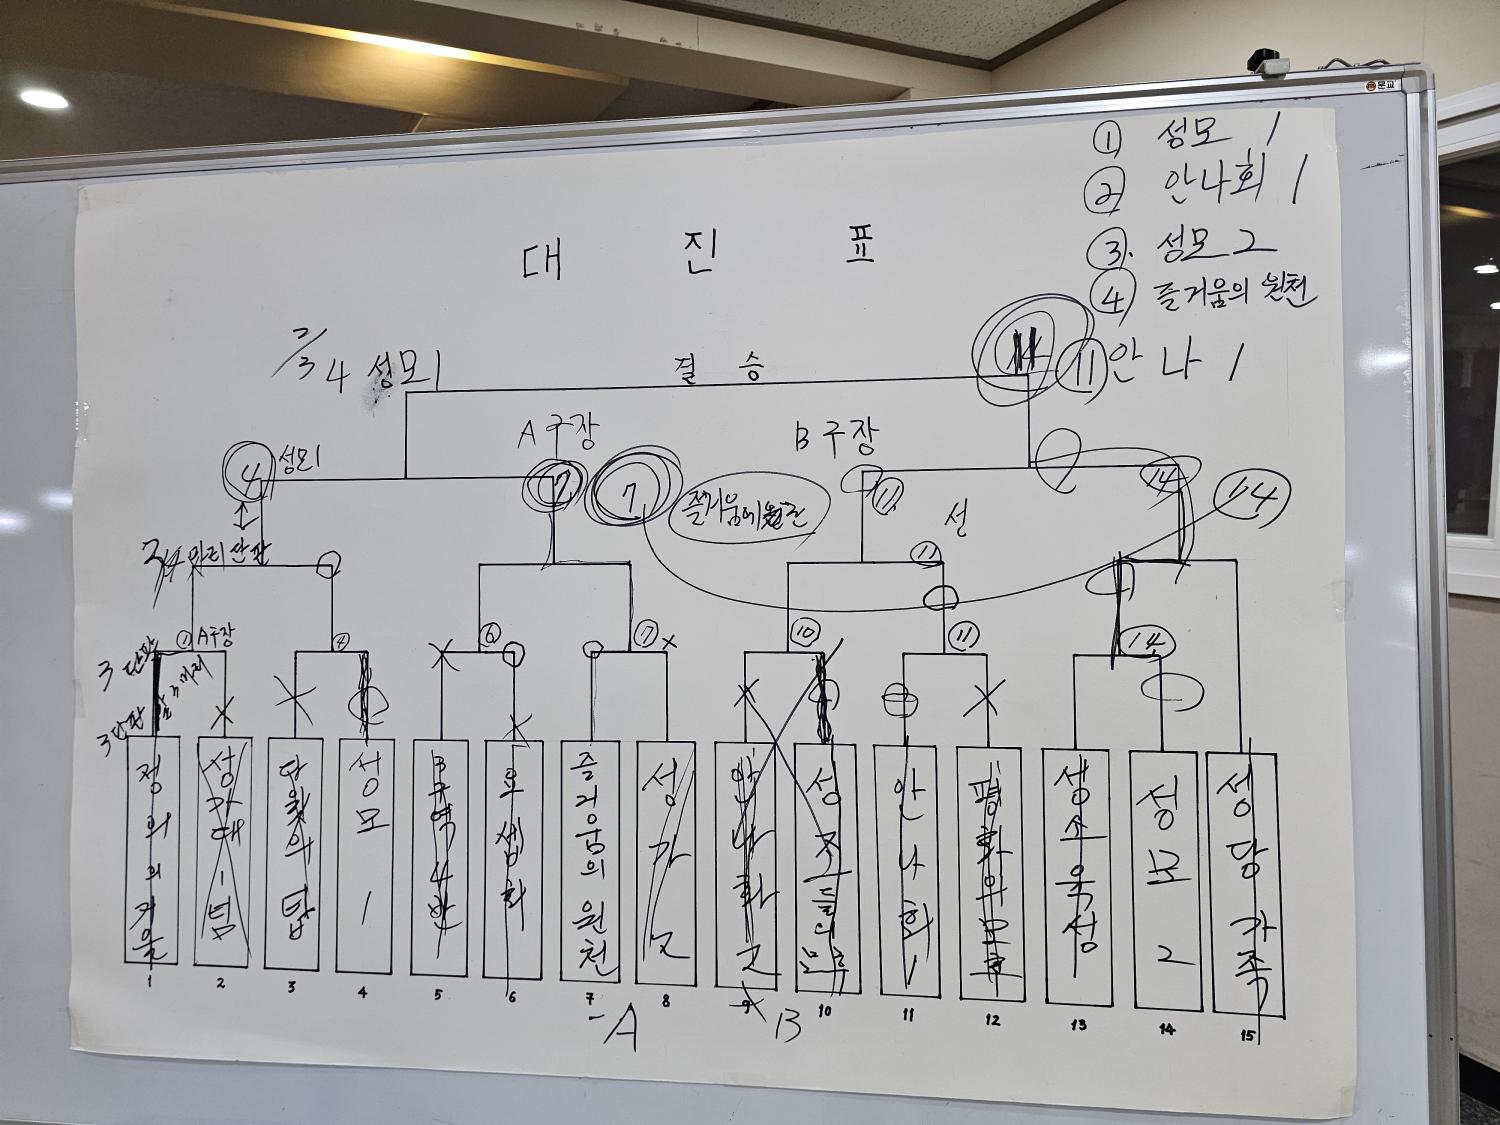 문교
① 성모 1
② 안나회 1
③. 성모 2
④ 즐거움의 원천
대 진 표
2/3 4 성모1
결 승
11 안 나 1
A 구장
B 구장
4 성모1
7
7
즐거움에원천
11
성
14
14
단판
11
① A구장
④
⑥
⑦ x
⑩
⑪
14
3 단판
3 단판
정의의거울
성가대 1 팀
다윗의탑
성모 1
B구역4반
요셉회
즐거움의 원천
성가 2
안나회 2
성조들의 보후
안나회 1
평화의모후
생소옥성
성모 2
성당가족
1 2 3 4 5 6 7 8 9 10 11 12 13 14 15
- A
B